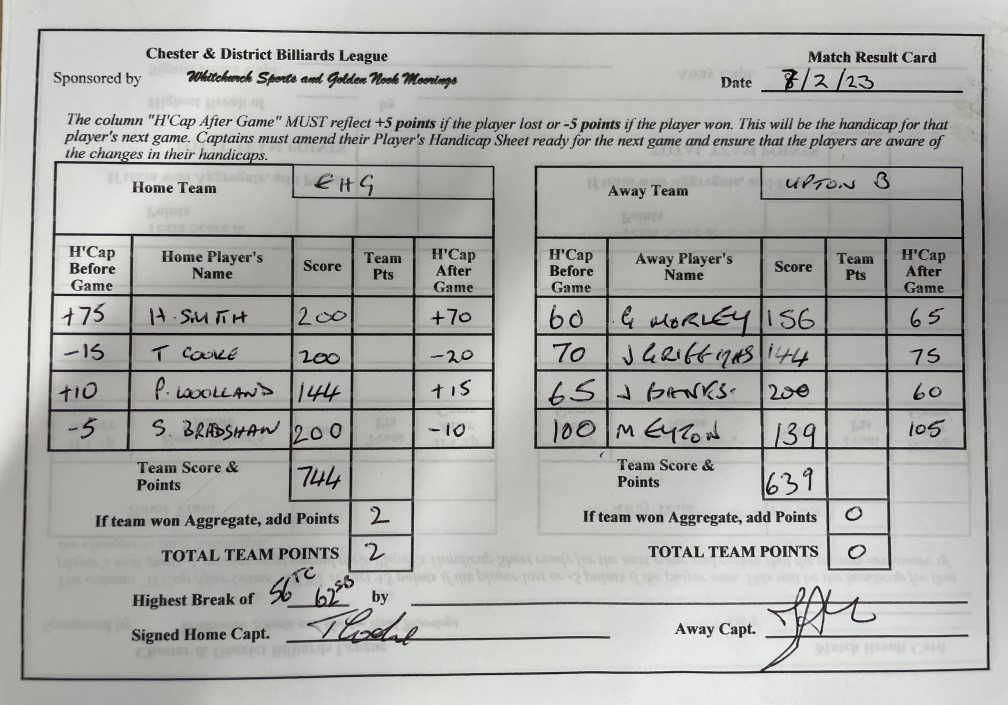 Chester & District Billiards League
Match Result Card
Sponsored by Whitchurch Sports and Golden Nook Moorings
Date 8/2/23
The column "H'Cap After Game" MUST reflect +5 points if the player lost or -5 points if the player won. This will be the handicap for that
player's next game. Captains must amend their Player's Handicap Sheet ready for the next game and ensure that the players are aware of
the changes in their handicaps.
Home Team EHG
H'Cap Before Game Home Player's Name Score Team Pts H'Cap After Game
+75 H. SMITH 200 +70
-15 T COOKE 200 -20
+10 P. WOOLLAND 144 +15
-5 S. BRADSHAW 200 -10
Team Score & Points 744
If team won Aggregate, add Points 2
TOTAL TEAM POINTS 2
Away Team UPTON B
H'Cap Before Game Away Player's Name Score Team Pts H'Cap After Game
60 G MORLEY 156 65
70 J GRIFFITHS 144 75
65 J BANKS. 200 60
100 M EYTON 139 105
Team Score & Points 639
If team won Aggregate, add Points 0
TOTAL TEAM POINTS 0
Highest Break of 56 TC 62 SB by
Signed Home Capt. T Cooke
Away Capt.